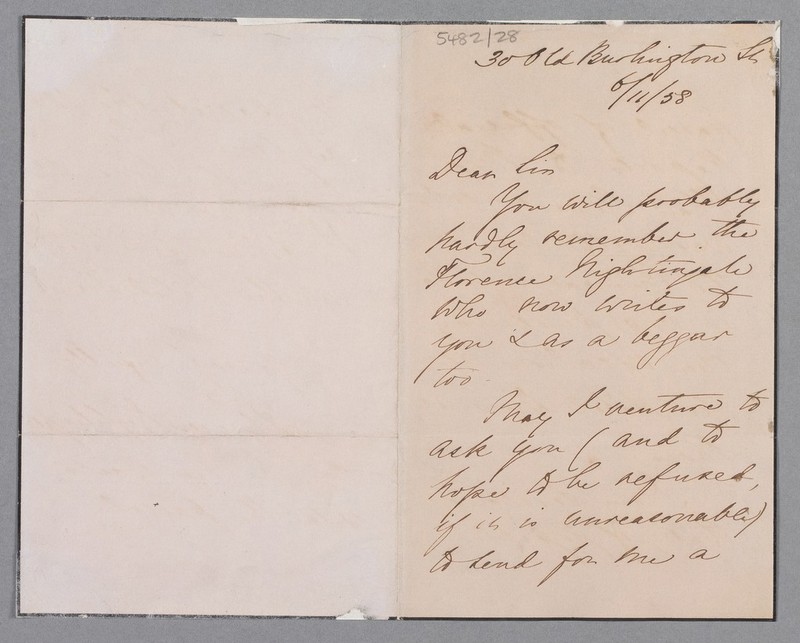 5482/28
30 Old Burlington St
6/11/58
Dear Sir
You will probably
hardly remember the
Florence Nightingale
who now writes to
you & as a beggar
too.
May I venture to
ask you (and to
hope to be refused,
if it is unreasonable)
to send for me a